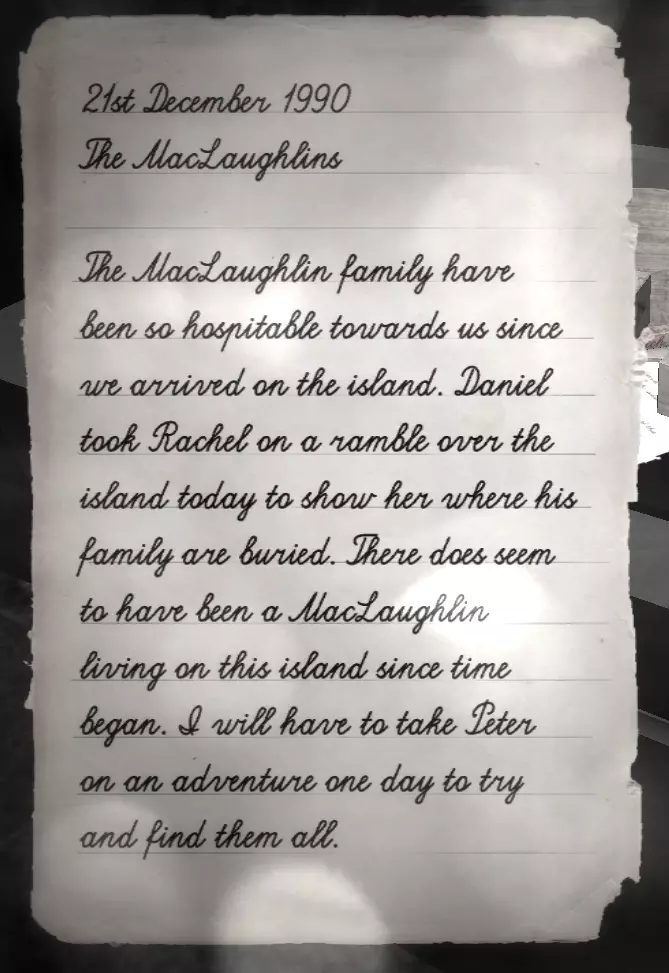 21st December 1990
The MacLaughlins
The MacLaughlin family have
been so hospitable towards us since
we arrived on the island. Daniel
took Rachel on a ramble over the
island today to show her where his
family are buried. There does seem
to have been a MacLaughlin
living on this island since time
began. I will have to take Peter
on an adventure one day to try
and find them all.